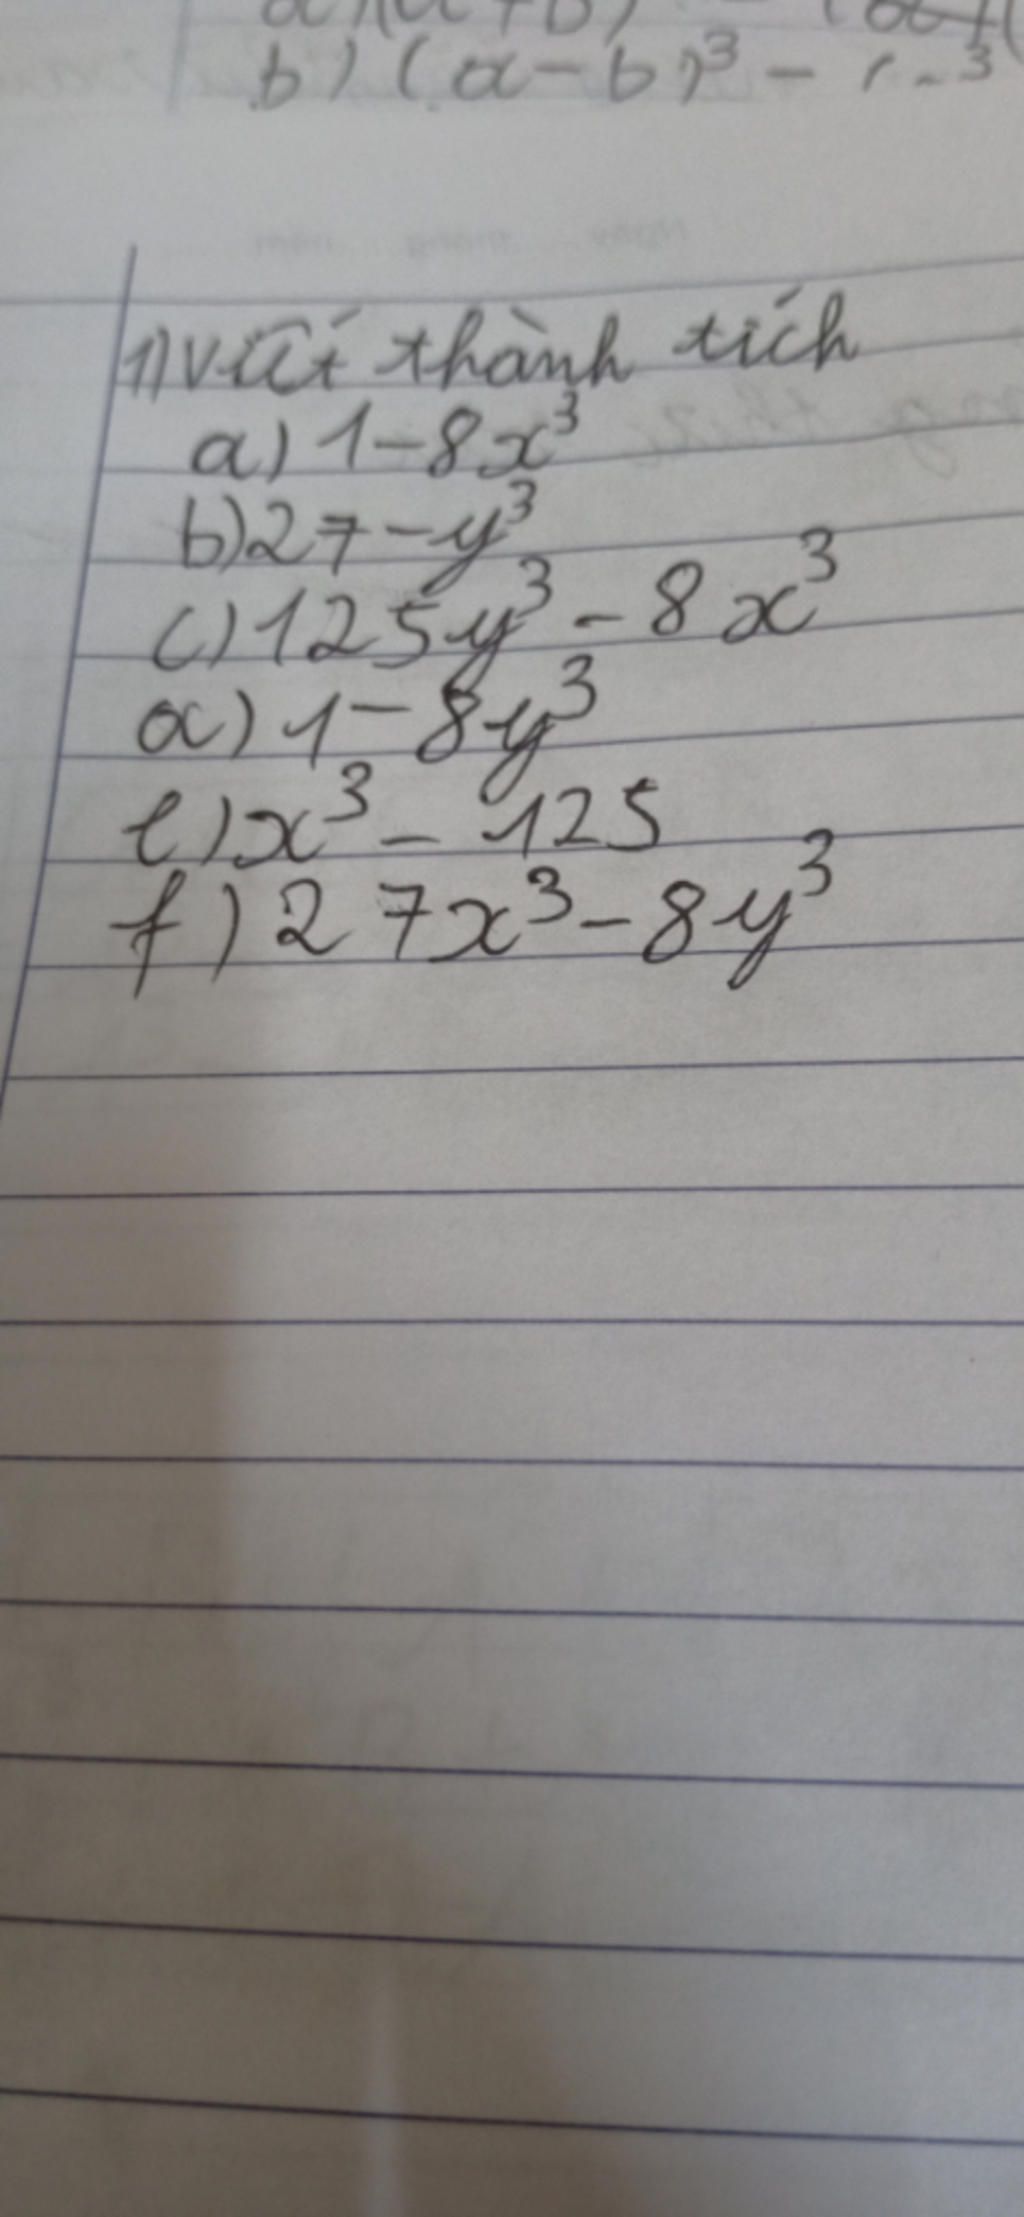 b) (a-b)³ -
1) viết thành tích
a) 1-8x³
b) 27-y³
c) 125y³ - 8x³
a) 1-8y³
e) x³ - 125
f) 27x³-8y³